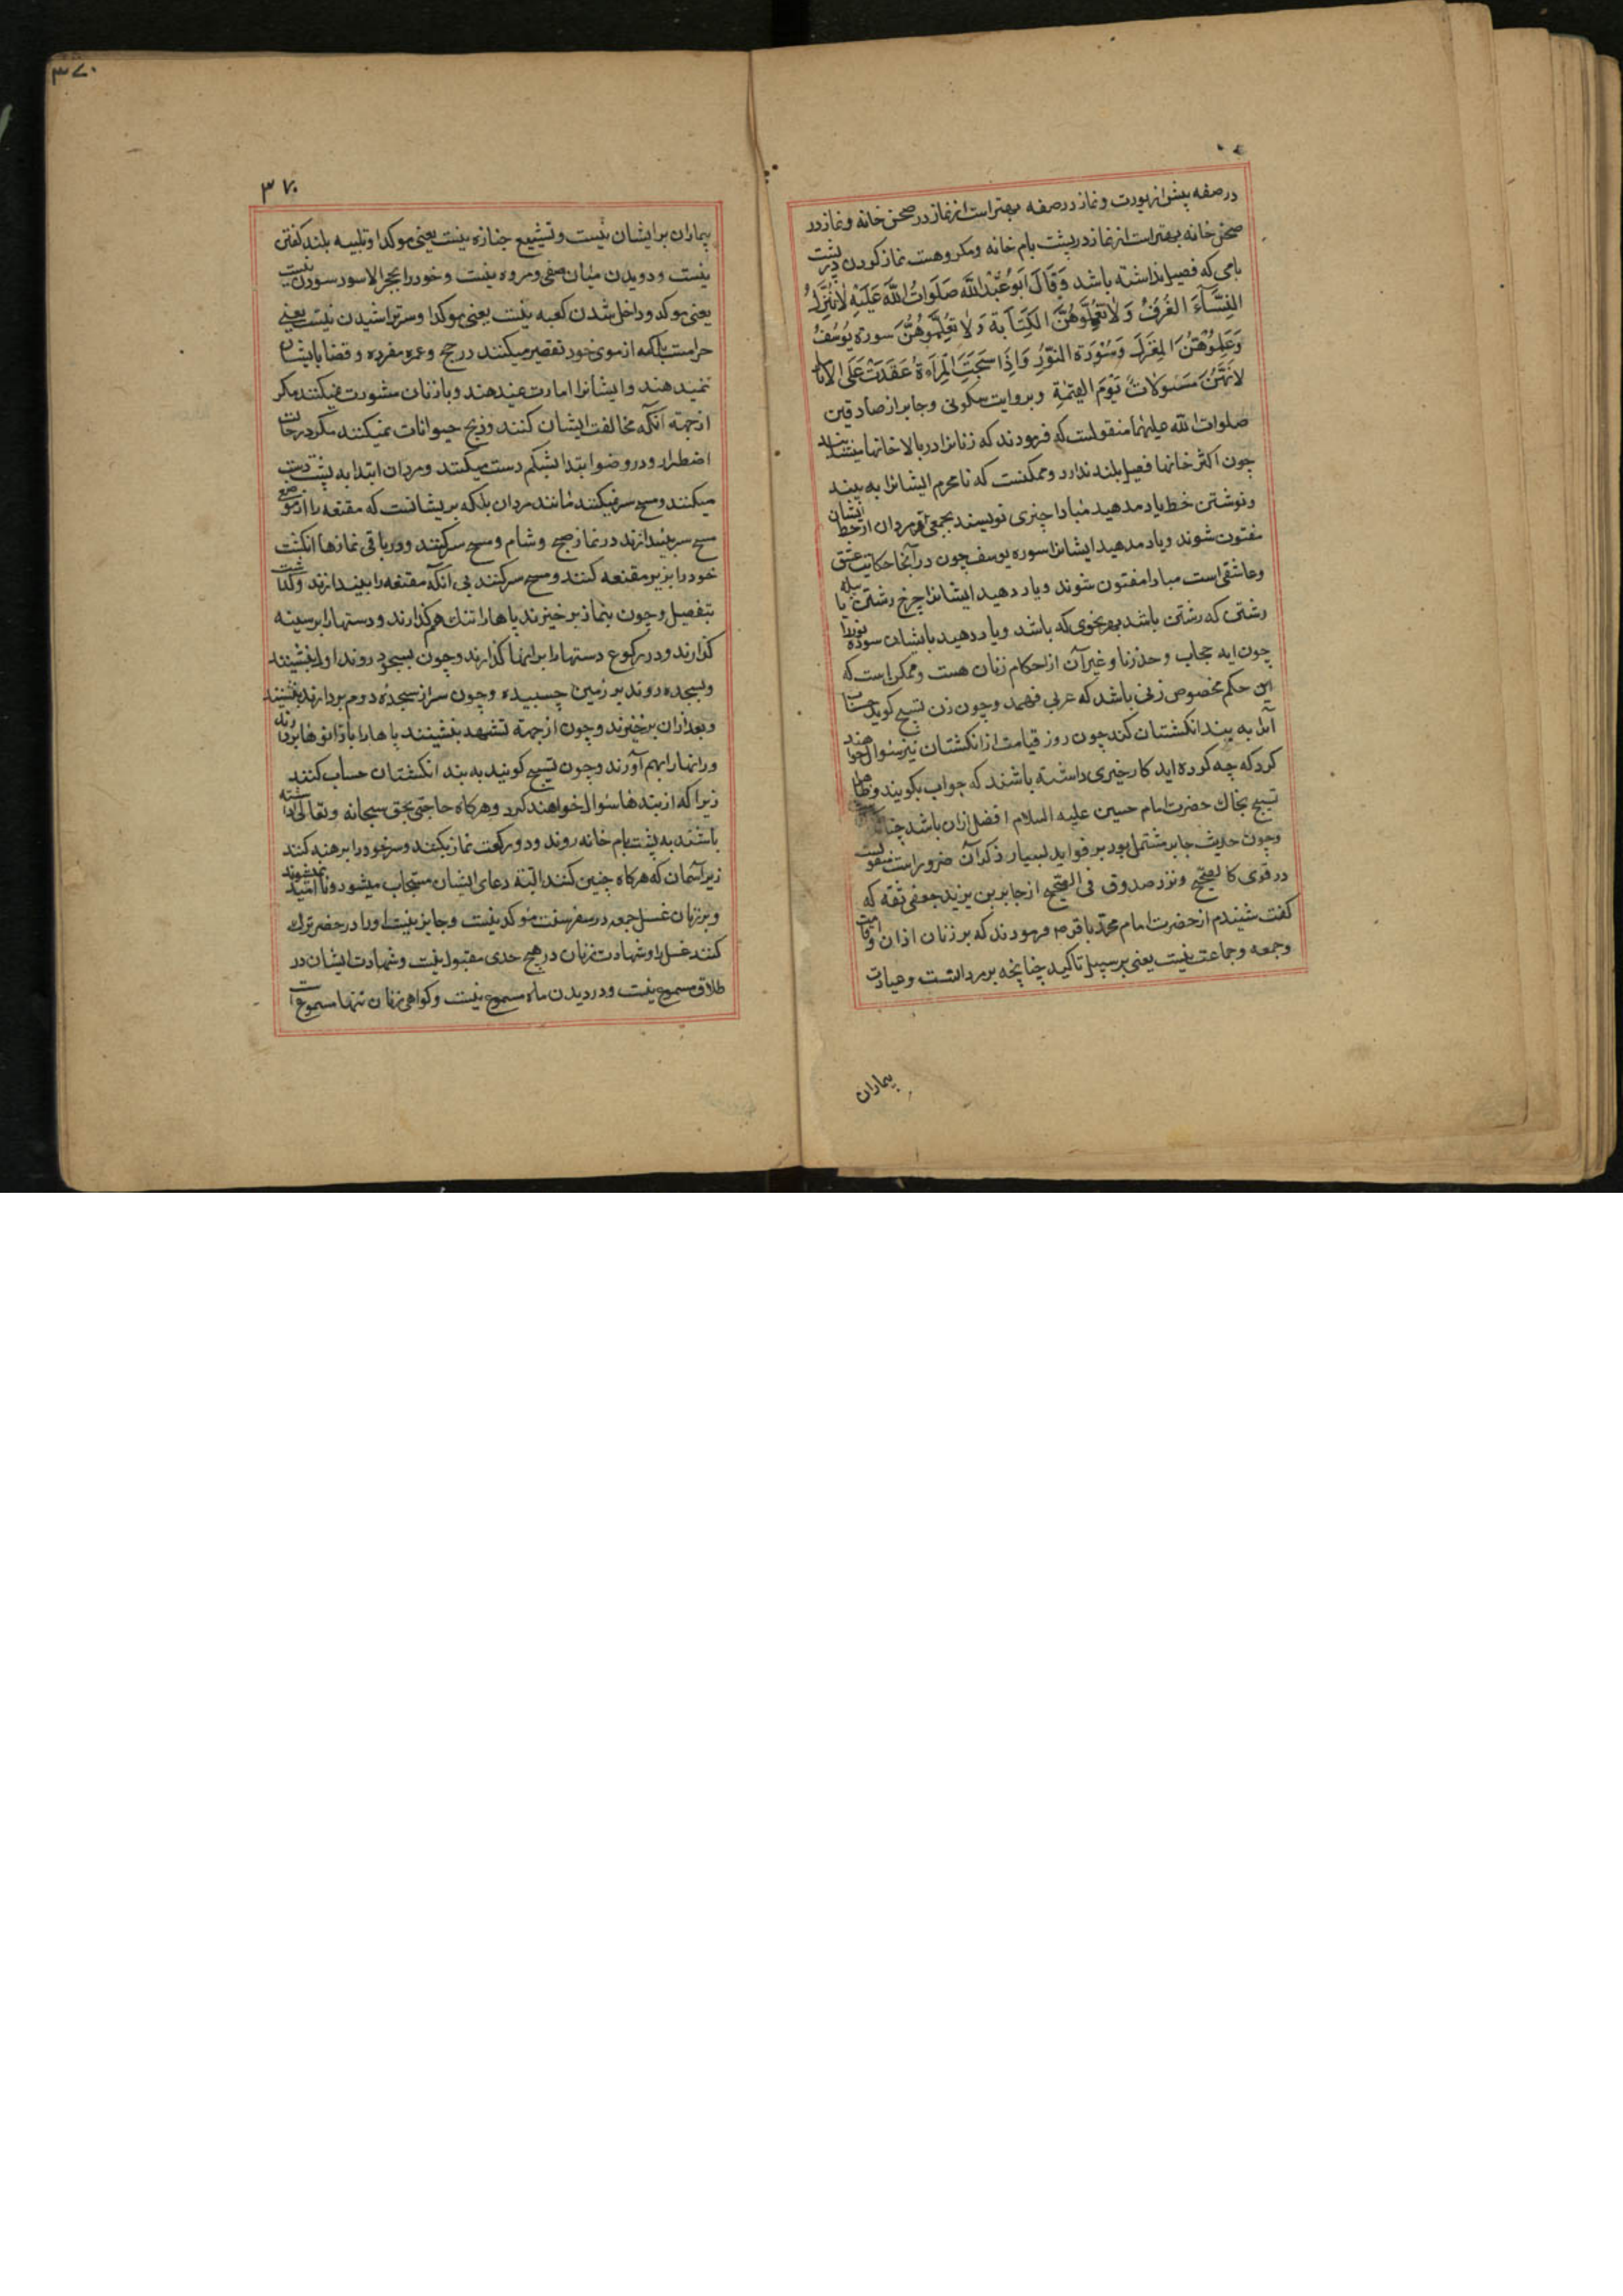 در صفه پیش از بودرت و نماز در صفه بهتر است از نماز در صحن خانه و نماز در
صحن خانه بهتر است از نماز در پشت بام خانه و مکروهست نماز کردن در پشت
بامی که فصیل نداشته باشد وَقَالَ اَبُو عَبْدِ اللَّه صَلَوَاتُ اللَّه عَلَیْهِ لَا تُنْزِلُوا
النِّسَآءَ الغُرَفَ وَلَا تُعَلِّمُوهُنَّ الکِتَابَة وَلَا تُعَلِّمُوهُنَّ سَورَه یُوسُفَ
وَعَلِّمُوهُنَّ المِغْزَلَ وَسُوْرَة النُّوْرِ وَاِذَا سَبَّحَتِ المَرْاَةُ عَقَدَتْ عَلَی الانَامِلِ
لِاَنَّهُنَّ مَسْئولَاتٌ یَوْمَ القِیٰمَةِ و بروایت سکونی و جابر از صادقین
صلوات الله علیهما منقولست که فرمودند که زنانرا در بالا خانها
چون اکثر خانها فصیل بلند ندارد و ممکنست که نامحرم ایشانرا به بیند
و نوشتن خط یاد مدهید مبادا چیزی نویسند بجمعی و مردان از خط ایشان
مفتون شوند و یاد مدهید ایشانرا سوره یوسف چون در آنجا حکایت عشق
و عاشقی است مبادا مفتون شوند و یاد دهید ایشانرا چرخ رشتن یا
رشتی که رشتن باشد بهر نحوی که باشد و یاد دهید بایشان سوره نور را
چون ایه حجاب و حد زنا و غیر آن از احکام زنان هست و ممکن است که
این حکم مخصوص زنی باشد که عربی فهمد و چون زن تسبیح کوید حساب
آنرا به بند انکشتان کند چون روز قیامت از انکشتان نیز سئوال خواهند
کرد که چه کرده اید کار خیری داشته باشند که جواب بکویند و ظاهرا
تسبیح بخاك حضرت امام حسین علیه السلام افضل ازان باشد
و چون حدیث جابر مشتمل بود بر فواید بسیار ذکر آن ضرور است منقولست
در قوی کا لصحیح و نزد صدوق فی الصحیح از جابر بن یزید جعفی ثقه که
کفت شنیدم از حضرت امام محمد باقر م فرمودند که بر زنان اذان و اقامت
و جمعه و جماعت نیست یعنی بر سبیل تاکید چنانچه بر مردانست و عیادت
بیماران
۳۷۰
۳۷۰
بیماران بر ایشان نیست و تشییع جنازه نیست یعنی موکدا و تلبیه بلند کفتن
نیست و دویدن میان صفی و مروه نیست و خود را بحجر الاسود سودن نیست
یعنی موکد و داخل شدن کعبه نیست یعنی موکدا و سر تراشیدن نیست یعنی
حرامست بلکه از موی خود تقصیر میکنند در حج و عمره مفرده و قضا بایشان
نمیدهند و ایشانرا امارت نمیدهند و با زنان مشورت نمیکنند مکر
از جهة آنکه مخالفت ایشان کنند و ذبح حیوانات نمیکنند مکر در حالت
اضطرار و در وضو ابتدا بشکم دست میکنند و مردان ابتدا به پشت دست
میکنند و مسح سر نمیکنند مانند مردان بلکه بر ایشانست که مقنعه را از موضع
مسح سر بیندازند در نماز صبح و شام و مسح سر کنند و در باقی نمازها انکشت
خود را بزیر مقنعه کنند و مسح سر کنند بی آنکه مقنعه را بیندازند و کذشت
بتفصیل و چون بنماز بر خیزند پاها را تنك هم کذارند و دستها را بر سینه
کذارند و در رکوع دستها را برانها کذارند و چون بسجود روند اول بنشینند
و بسجده روند بر زمین چسبیده و چون سر از سجده دوم بردارند بنشینند
و بعد ازان بر خیزند و چون از جهة تشهد بنشینند پاها را با زانوها بردارند
و رانها را بهم آورند و چون تسبیح کویند به بند انکشتان حساب کنند
زیرا که از بندها سئوال خواهند کرد و هرکاه حاجتی بحق سبحانه و تعالی داشته
باشند به پشت بام خانه روند و دو رکعت نماز بکنند و سر خود را برهنه کنند
زیر آسمان که هرکاه چنین کنند البته دعای ایشان مستجاب میشود و نا امید نمیشوند
و بر زنان غسل جمعه در سفر سنت موکد نیست و جایز نیست اورا در حضر ترك
کنند غسل را و شهادت زنان در هیچ حدی مقبول نیست و شهادت ایشان در
طلاق مسموع نیست و در دیدن ماه مسموع نیست و کواهی زنان تنها مسموع است